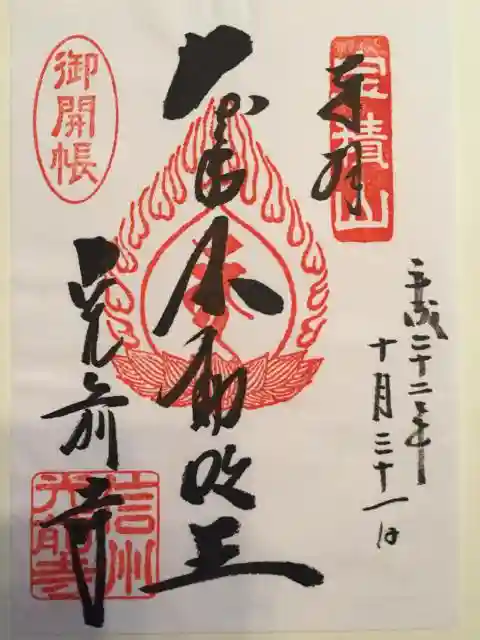 奉拝
宝積山
平成二十二年
十月三十一日
不動明王
光前寺
御開帳
信州
光前寺